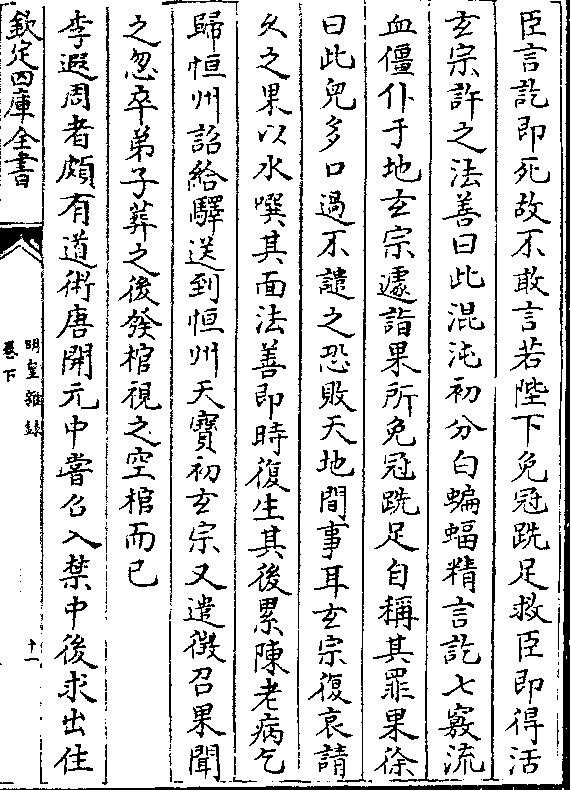 臣言訖即死故不敢言若陛下免冠跣足救臣即得活
玄宗許之法善曰此混沌初分白蝙蝠精言訖七竅流
血僵仆于地玄宗遽詣果所免冠跣足自稱其罪果徐
曰此兒多口過不譴之恐敗天地間事耳玄宗復哀請
久之果以水噀其面法善即時復生其後累陳老病乞
歸恒州詔給驛送到恒州天寶初玄宗又遣徵召果聞
之忽卒弟子葬之後發棺視之空棺而已
李遐周者頗有道術唐開元中嘗召入禁中後求出住
欽定四庫全書
明皇雜録
卷下
十一